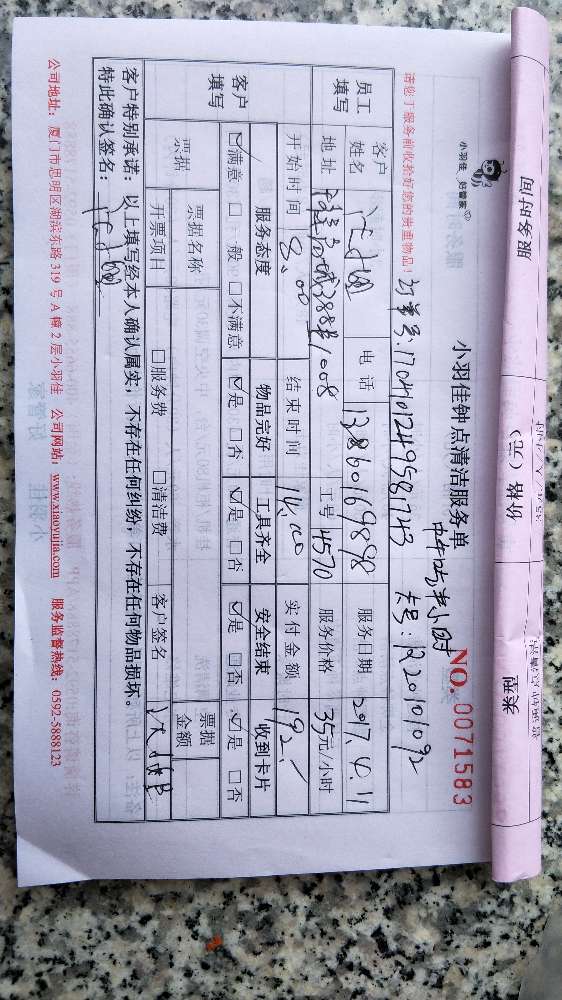 服务时间
价格（元）
35元/人/小时
类型
小羽佳 好管家
小羽佳钟点清洁服务单
NO. 0071583
请您于服务前收拾好您的贵重物品！
订单号:
卡号:
员工填写
客户姓名
电话
13860169898
服务日期
2017.4.11
地址
工号
4570
服务价格
35元/小时
开始时间
8:00
结束时间
14:00
实付金额
192.
客户填写
服务态度
物品完好
工具齐全
安全结束
收到卡片
☑满意 □一般 □不满意
☑是 □否
☑是 □否
☑是 □否
☑是 □否
票据
票据名称
票据金额
开票项目
□服务费 □清洁费
客户签名
客户特别承诺：以上填写经本人确认属实，不存在任何纠纷，不存在任何物品损坏。
特此确认签名：
公司地址：厦门市思明区湖滨东路 319 号 A 幢 2 层小羽佳 公司网站：www.xiaoyujia.com 服务监督热线：0592-5888123